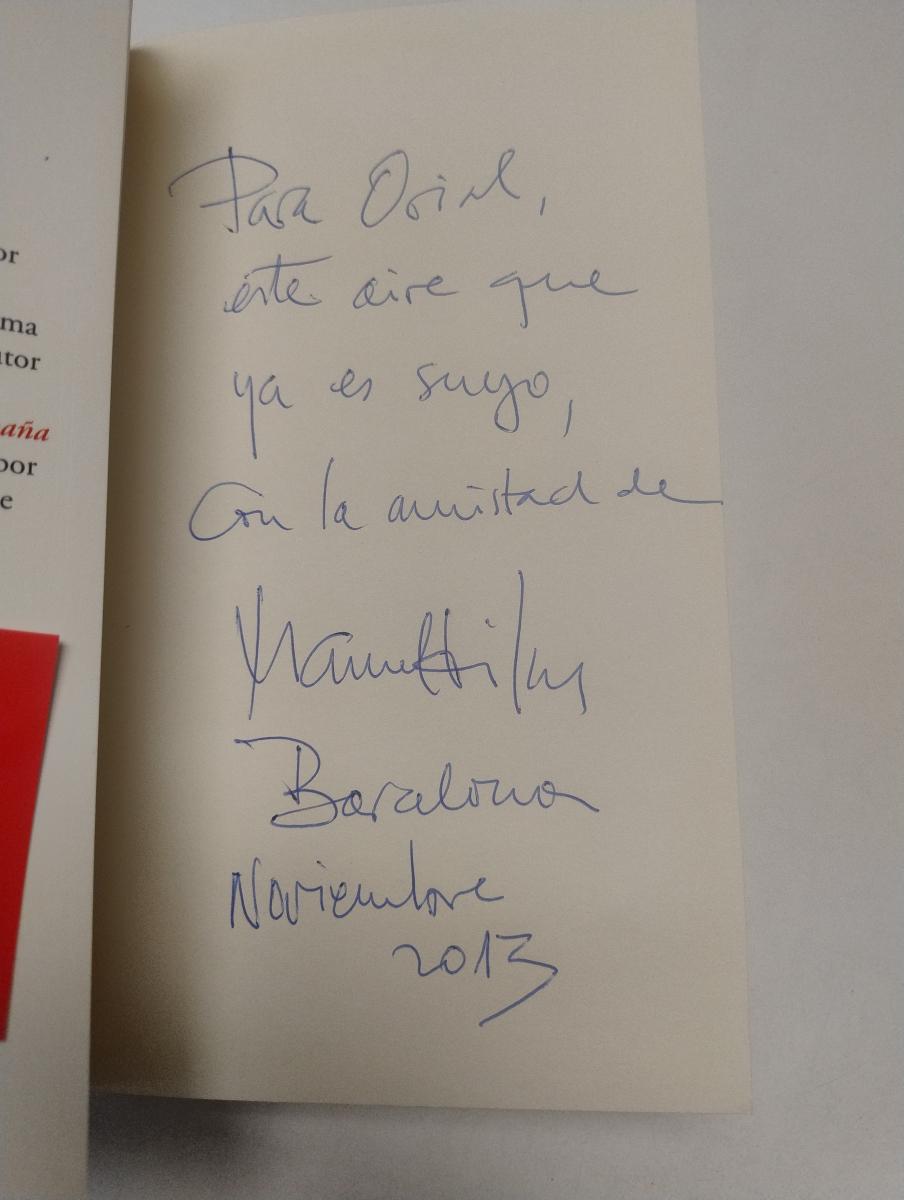 or
ma
utor
aña
por
e
Para Oriol,
éste aire que
ya es suyo,
Con la amistad de
Manuel Vilas
Barcelona
Noviembre
2013